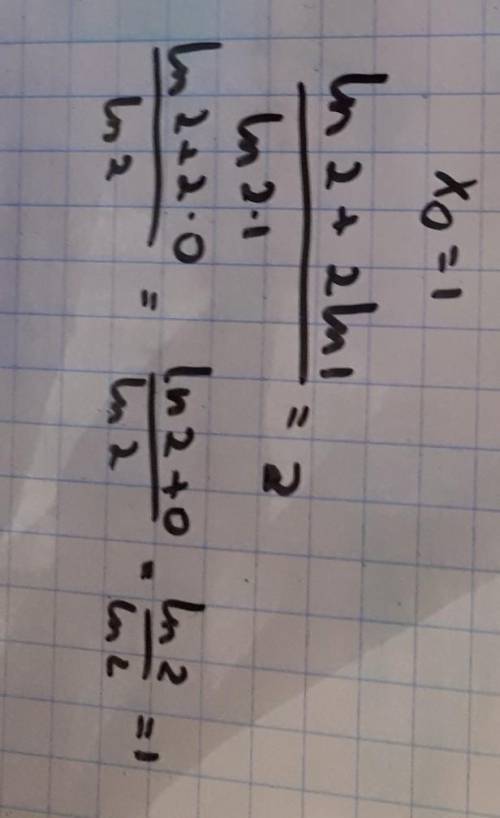 x₀ = 1
ln 2 + 2 ln 1 / ln 2·1 = 2
ln 2 + 2·0 / ln 2 = ln 2 + 0 / ln 2 = ln 2 / ln 2 = 1